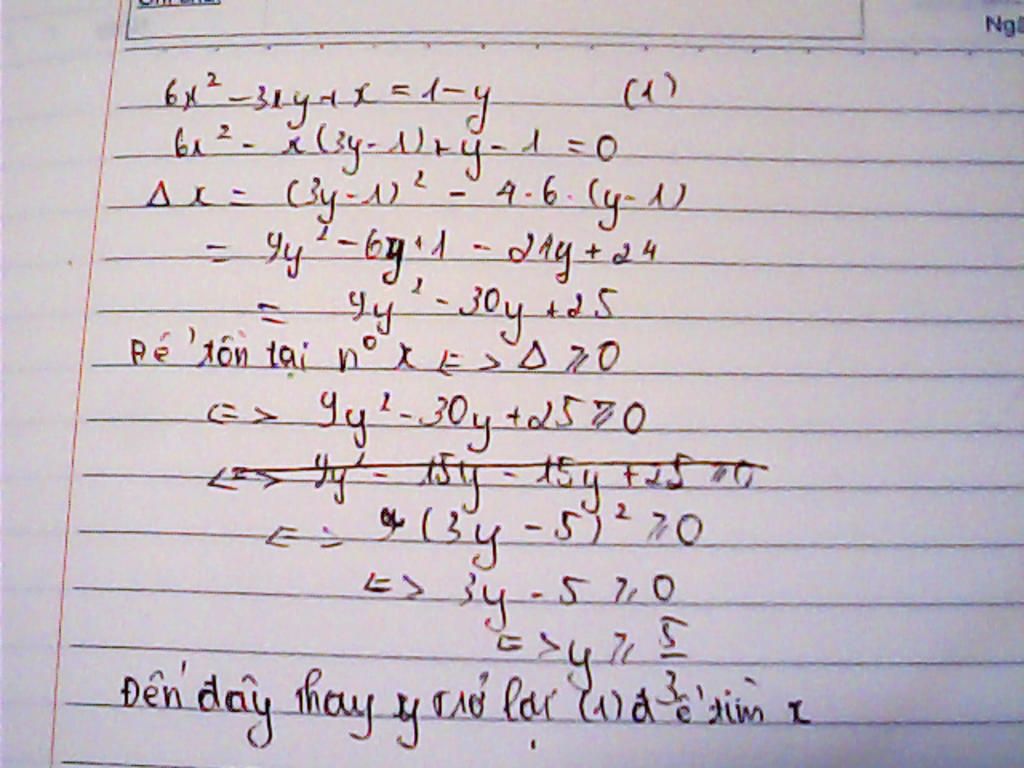 Ngà
6x² - 3xy + x = 1 - y (1)
6x² - x(3y - 1) + y - 1 = 0
Δx = (3y - 1)² - 4.6.(y - 1)
= 9y² - 6y + 1 - 24y + 24
= 9y² - 30y + 25
Để tồn tại n⁰ x <=> Δ ≥ 0
<=> 9y² - 30y + 25 ≥ 0
<=> 9y² - 15y - 15y + 25 ≥ 0
<=> (3y - 5)² ≥ 0
<=> 3y - 5 ≥ 0
<=> y ≥ 5/3
Đến đây thay y trở lại (1) để tìm x